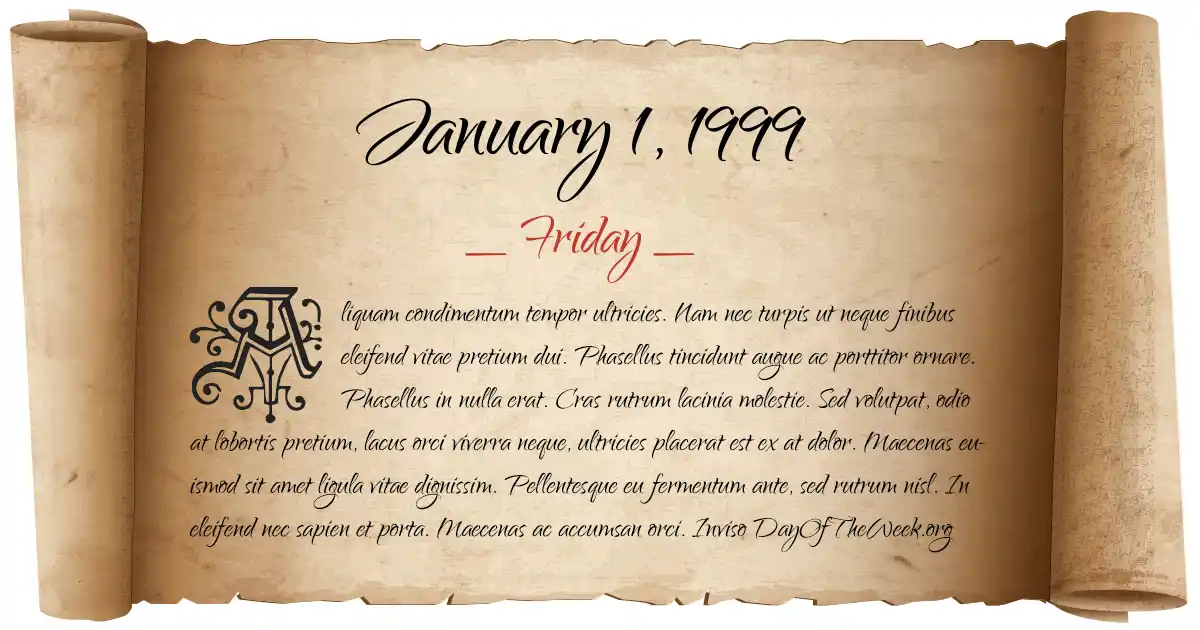 January 1, 1999
_ Friday _
Aliquam condimentum tempor ultricies. Nam nec turpis ut neque finibus
eleifend vitae pretium dui. Phasellus tincidunt augue ac porttitor ornare.
Phasellus in nulla erat. Cras rutrum lacinia molestie. Sed volutpat, odio
at lobortis pretium, lacus orci viverra neque, ultricies placerat est ex at dolor. Maecenas eu-
ismod sit amet ligula vitae dignissim. Pellentesque eu fermentum ante, sed rutrum nisl. In
eleifend nec sapien et porta. Maecenas ac accumsan orci. Inviso DayOfTheWeek.org